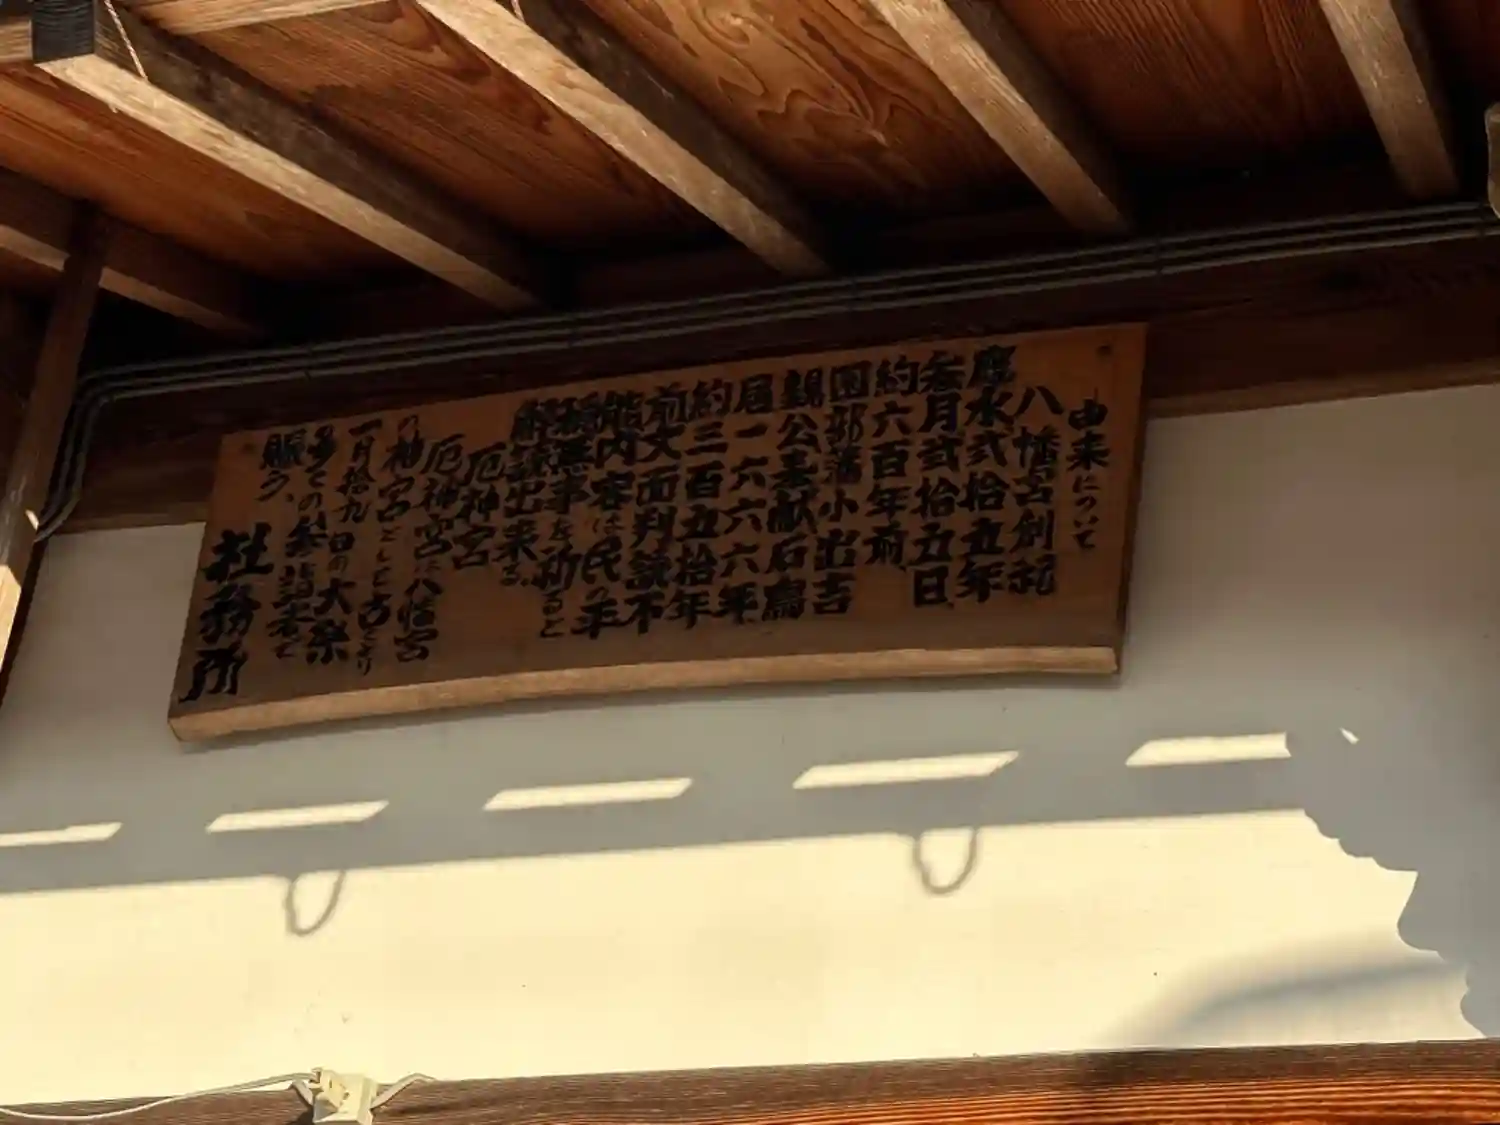 由来について
八幡宮創祀
應永弐拾五年
参月弐拾五日
約六百年前
園部藩小出吉
親公奉献石鳥
居一六六六年
約三百五拾年
前文面判読不
能内容は民の平
穏無事を祈ると
解読出来る。
厄神宮
厄神宮は八幡宮
の神宮として古くより
一月拾九日の大祭
多くの参詣者で
賑う、
社務所